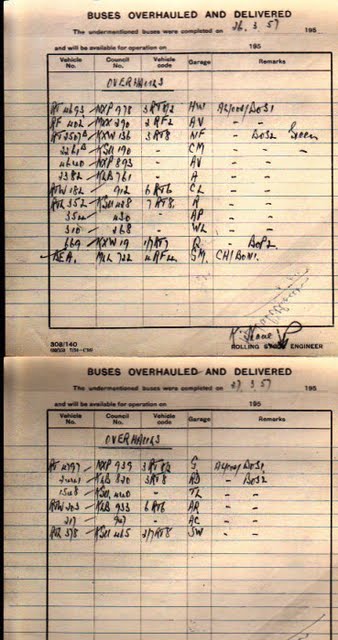 BUSES OVERHAULED AND DELIVERED
The undermentioned buses were completed on 26.3.57 195
and will be available for operation on 195
Vehicle No. Council No. Vehicle code Garage Remarks
OVERHAULS
RT 4693 NXP 978 3RT8/2 HW
RF 402 MXX 290 2RF2 AV - -
RT 2507 KXW 136 3RT8 NF - BOS2 Green
2261 KGU 190 - CM - -
4640 NXP 893 - AV - -
2382 KLB 761 - A - -
RTW 182 KLB 912 6RT6 CL - -
RTL 352 KGU 428 7RT8 R - -
354 430 - AP - -
310 268 - WL - -
669 KXW 19 1/7RT7 Q - BOP2
BEA. MLL 722 4RF4 SM.
ROLLING STOCK ENGINEER
302/140
BUSES OVERHAULED AND DELIVERED
The undermentioned buses were completed on 27.3.57 195
and will be available for operation on 195
Vehicle No. Council No. Vehicle code Garage Remarks
OVERHAULS
RT 4797 NXP 939 3RT8/2 G
KLB 820 3RT8 RD - BOS2
1528 - TL - -
RTW 203 KLB 933 6RT6 AR - -
217 947 - AC - -
RTL 378 KGU 465 2/7RT8 SW - -